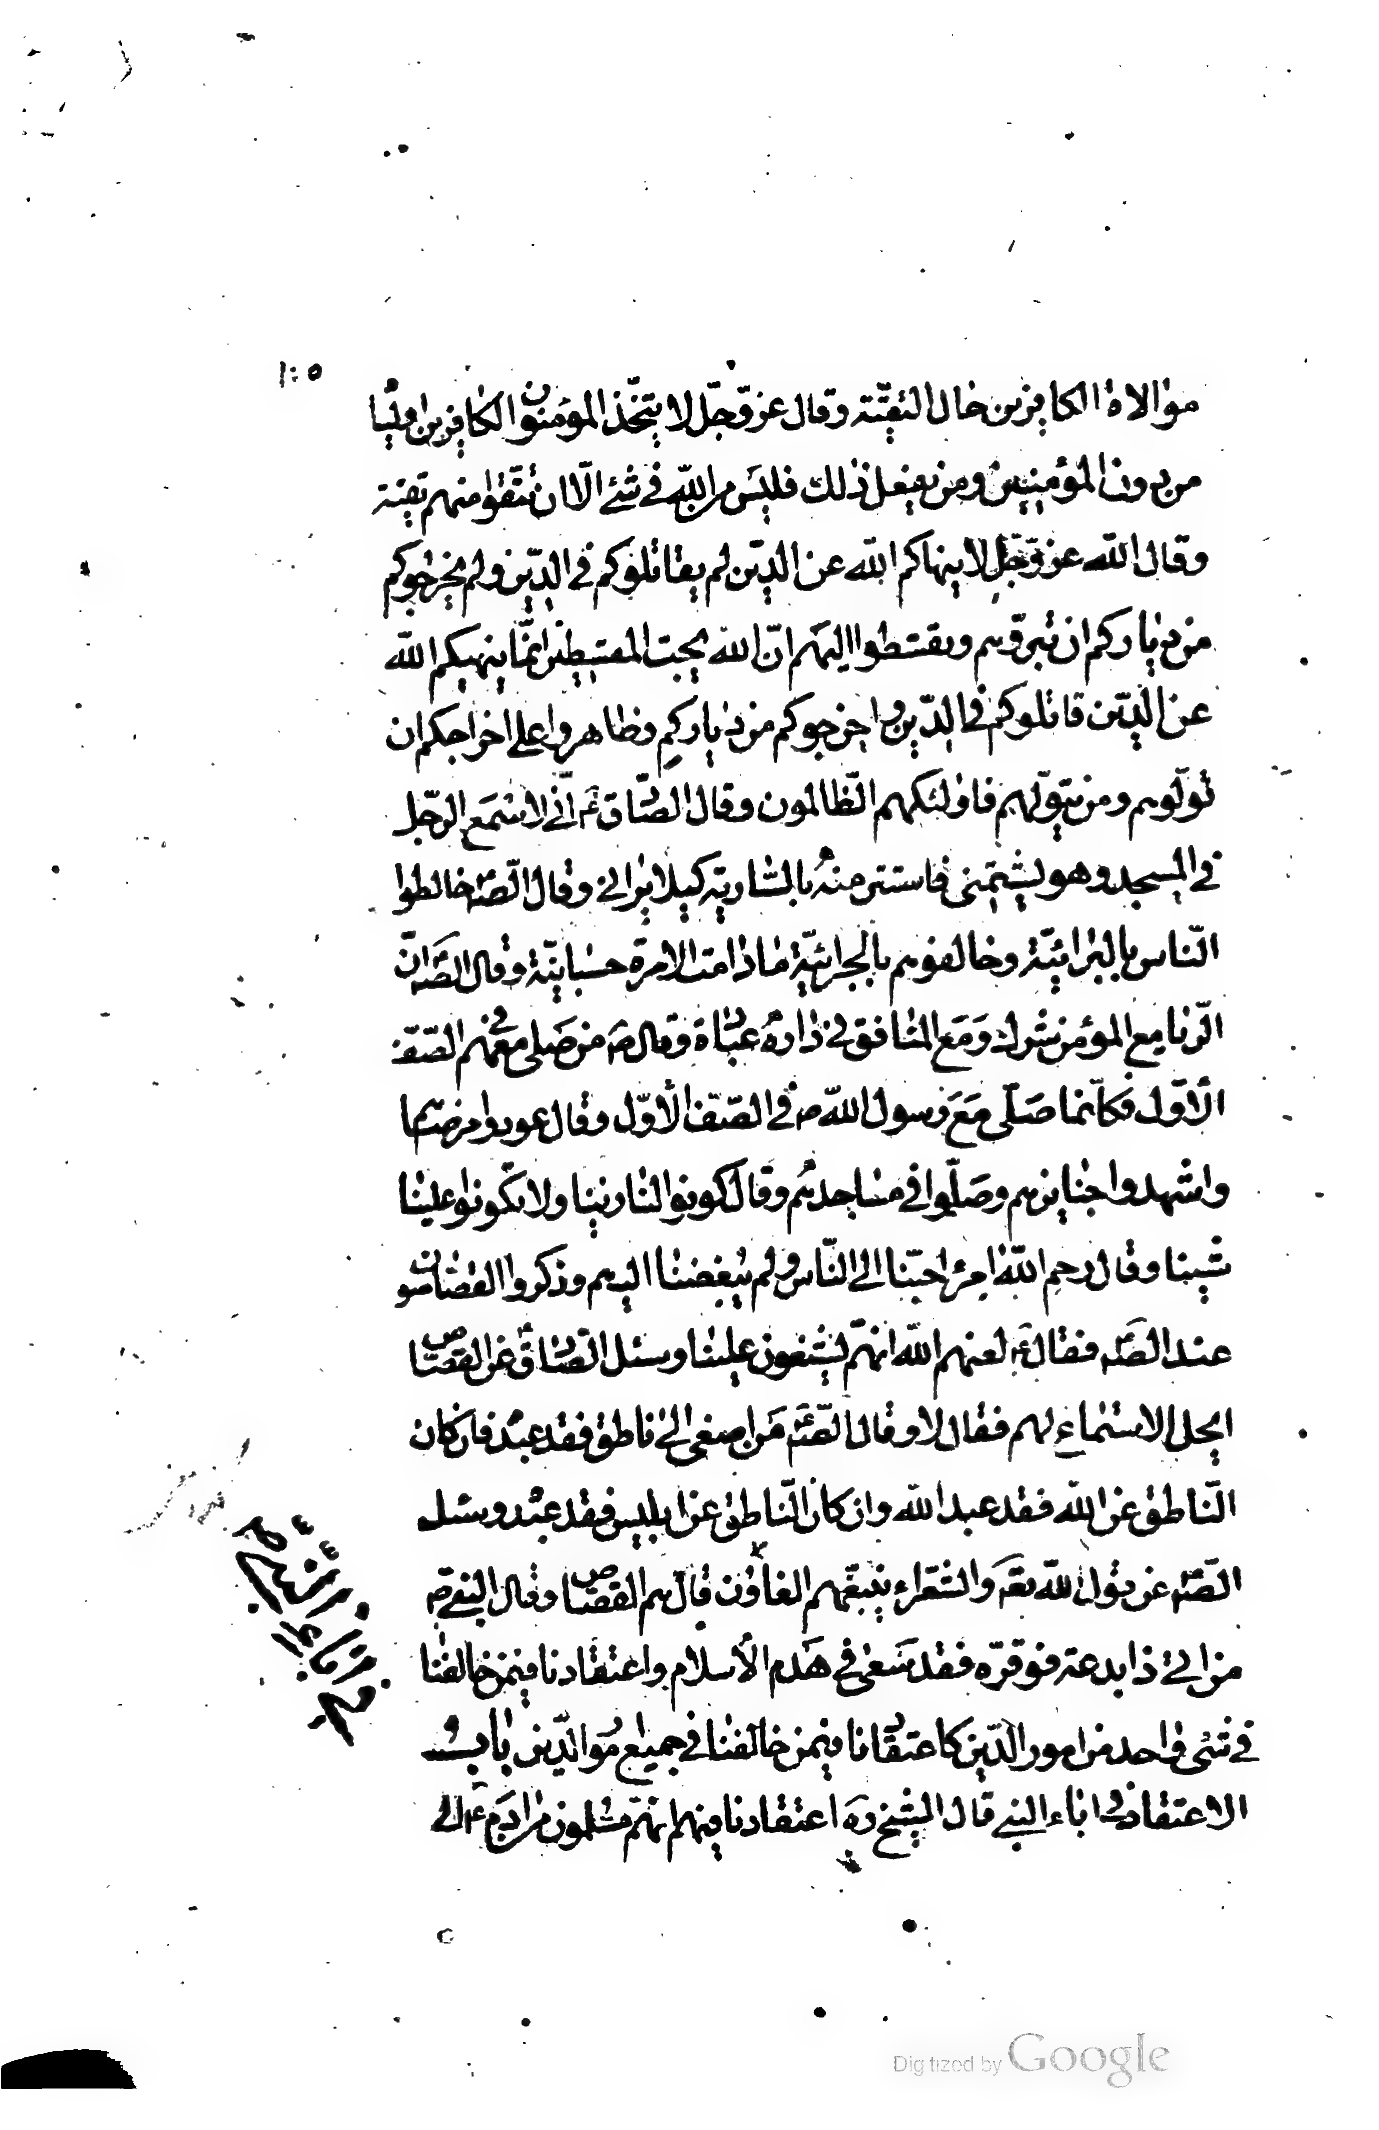 ١٠٥
موالاة الكافرين حال التقيّة وقال عزّ وجلّ لا يتّخذ المؤمنون الكافرين اوليا
من دون المؤمنين ومن يفعل ذلك فليس من اللّه في شئ الّا ان تتّقوا منهم تقية
وقال اللّه عزّ وجلّ لا ينهاكم اللّه عن الذّين لم يقاتلوكم في الدّين ولم يخرجوكم
من دياركم ان تبرّوهم وتقسطوا اليهم انّ اللّه يحبّ المقسطين انّما ينهيكم اللّه
عن الذّين قاتلوكم في الدّين واخرجوكم من دياركم وظاهروا على اخراجكم ان
تولّوهم ومن يتولّهم فاولئك هم الظّالمون وقال الصّادق ع انّي لاسمع الرّجل
في المسجد وهو يشتمنى فاستتر منه بالسّارية كيلا يراني وقال الصّ ع خالطوا
النّاس بالبرّانيّة وخالفوهم بالجوانيّة ما دامت الامرة حسبانيّة وقال الصّ ع انّ
الرّيا مع المؤمن شرك ومع المنافق في داره عبادة وقال ع من صلى معهم في الصّفّ
الأوّل فكأنّما صلّى مع رسول اللّه ص في الصّفّ الأوّل وقال عودوا مرضيهم
واشهدوا جنايزهم وصلّوا في مساجدهم وقال كونوا لنا زينا ولا تكونوا علينا
شينا وقال رحم اللّه امرءً احبّنا الى النّاس ولم يبغضنا اليهم وذكروا القصّاصون
عند الصّ ع فقال ع لعنهم اللّه انّهم يشنعون علينا وسئل الصّادق ع عن القصّاص
ايحلّ الاستماع لهم فقال لا وقال الصّ ع من اصغى الى ناطق فقد عبده فان كان
النّاطق عن اللّه فقد عبد اللّه وان كان النّاطق عن ابليس فقد عبد وسئل
الصّ ع عن قول اللّه تع والشّعراء يتّبعهم الغاون قال هم القصّاص وقال النبي ص
من اتى ذا بدعة فوقّره فقد سعى في هدم الأسلام واعتقادنا فيمن خالفنا
في شئ واحد من امور الدّين كاعتقادنا فيمن خالفنا في جميع امور الدّين باب
الاعتقاد في اباء النبي قال الشيخ ره اعتقادنا فيهم انّهم مسلمون من ادم ع الى
في اباء النّبي ص